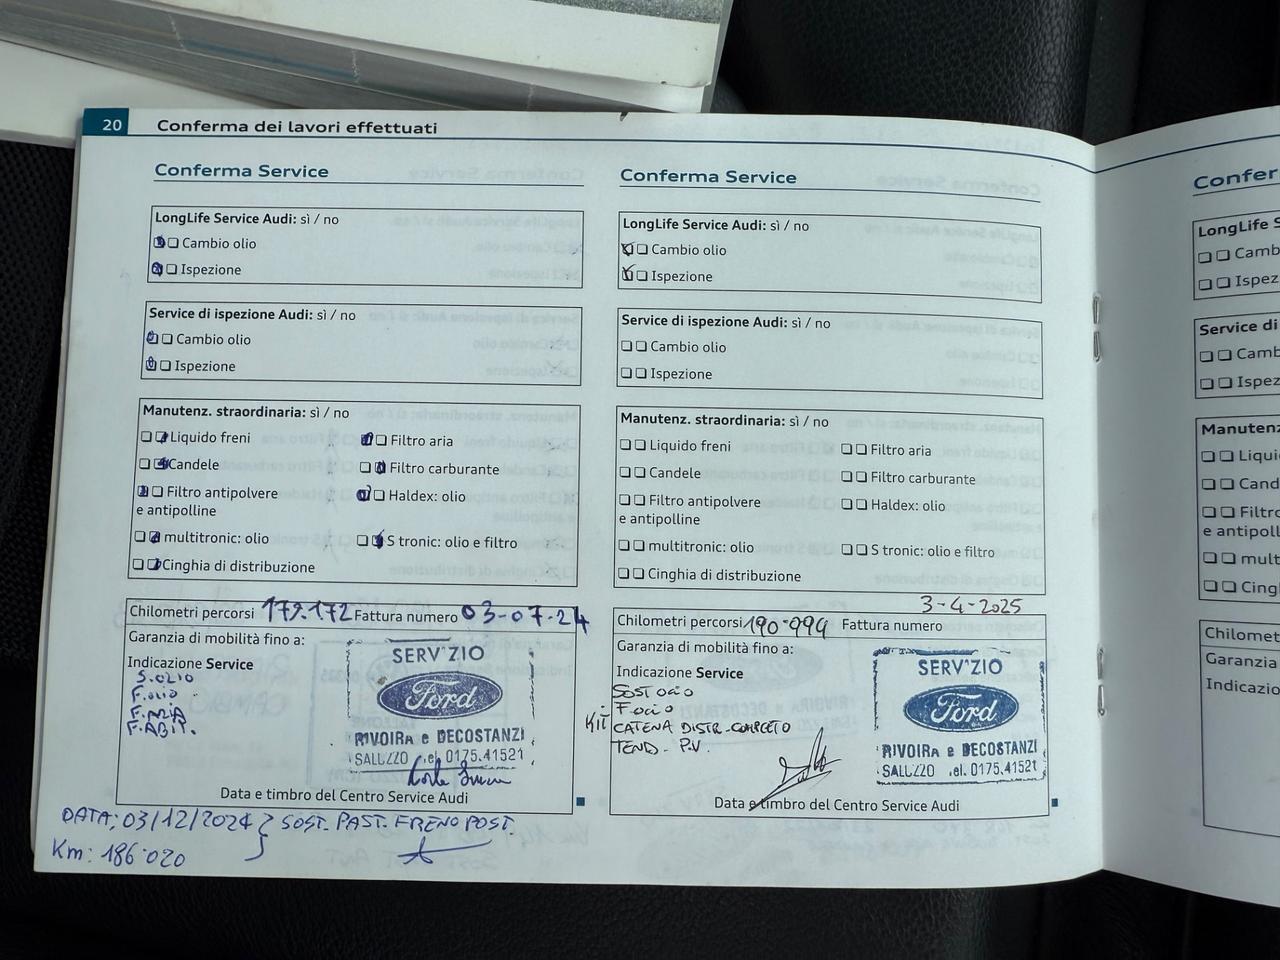 20 Conferma dei lavori effettuati
Conferma Service
LongLife Service Audi: sì / no
Cambio olio
Ispezione
Service di ispezione Audi: sì / no
Cambio olio
Ispezione
Manutenz. straordinaria: sì / no
Liquido freni
Filtro aria
Candele
Filtro carburante
Filtro antipolvere
e antipolline
Haldex: olio
multitronic: olio
S tronic: olio e filtro
Cinghia di distribuzione
Chilometri percorsi 179.172 Fattura numero 03-07-24
Garanzia di mobilità fino a:
Indicazione Service
S.OLIO
F.OLIO
F.ARIA
F.ABIT.
SERV'ZIO
Ford
RIVOIRA e DECOSTANZI
SALUZZO .el. 0175.41521
Data e timbro del Centro Service Audi
DATA: 03/12/2024 } SOST. PAST. FRENO POST.
Km: 186.020
Conferma Service
LongLife Service Audi: sì / no
Cambio olio
Ispezione
Service di ispezione Audi: sì / no
Cambio olio
Ispezione
Manutenz. straordinaria: sì / no
Liquido freni
Filtro aria
Candele
Filtro carburante
Filtro antipolvere
e antipolline
Haldex: olio
multitronic: olio
S tronic: olio e filtro
Cinghia di distribuzione
3-4-2025
Chilometri percorsi 190.994 Fattura numero
Garanzia di mobilità fino a:
Indicazione Service
SOST OLIO
F OLIO
KIT CATENA DISTR. COMPLETO
TEND. P.V.
SERV'ZIO
Ford
RIVOIRA e DECOSTANZI
SALUZZO .el. 0175.41521
Data e timbro del Centro Service Audi
Confer
LongLife S
Camb
Ispez
Service di
Camb
Ispez
Manuten
Liqui
Cand
Filtro
e antipoll
mult
Cing
Chilomet
Garanzia
Indicazio